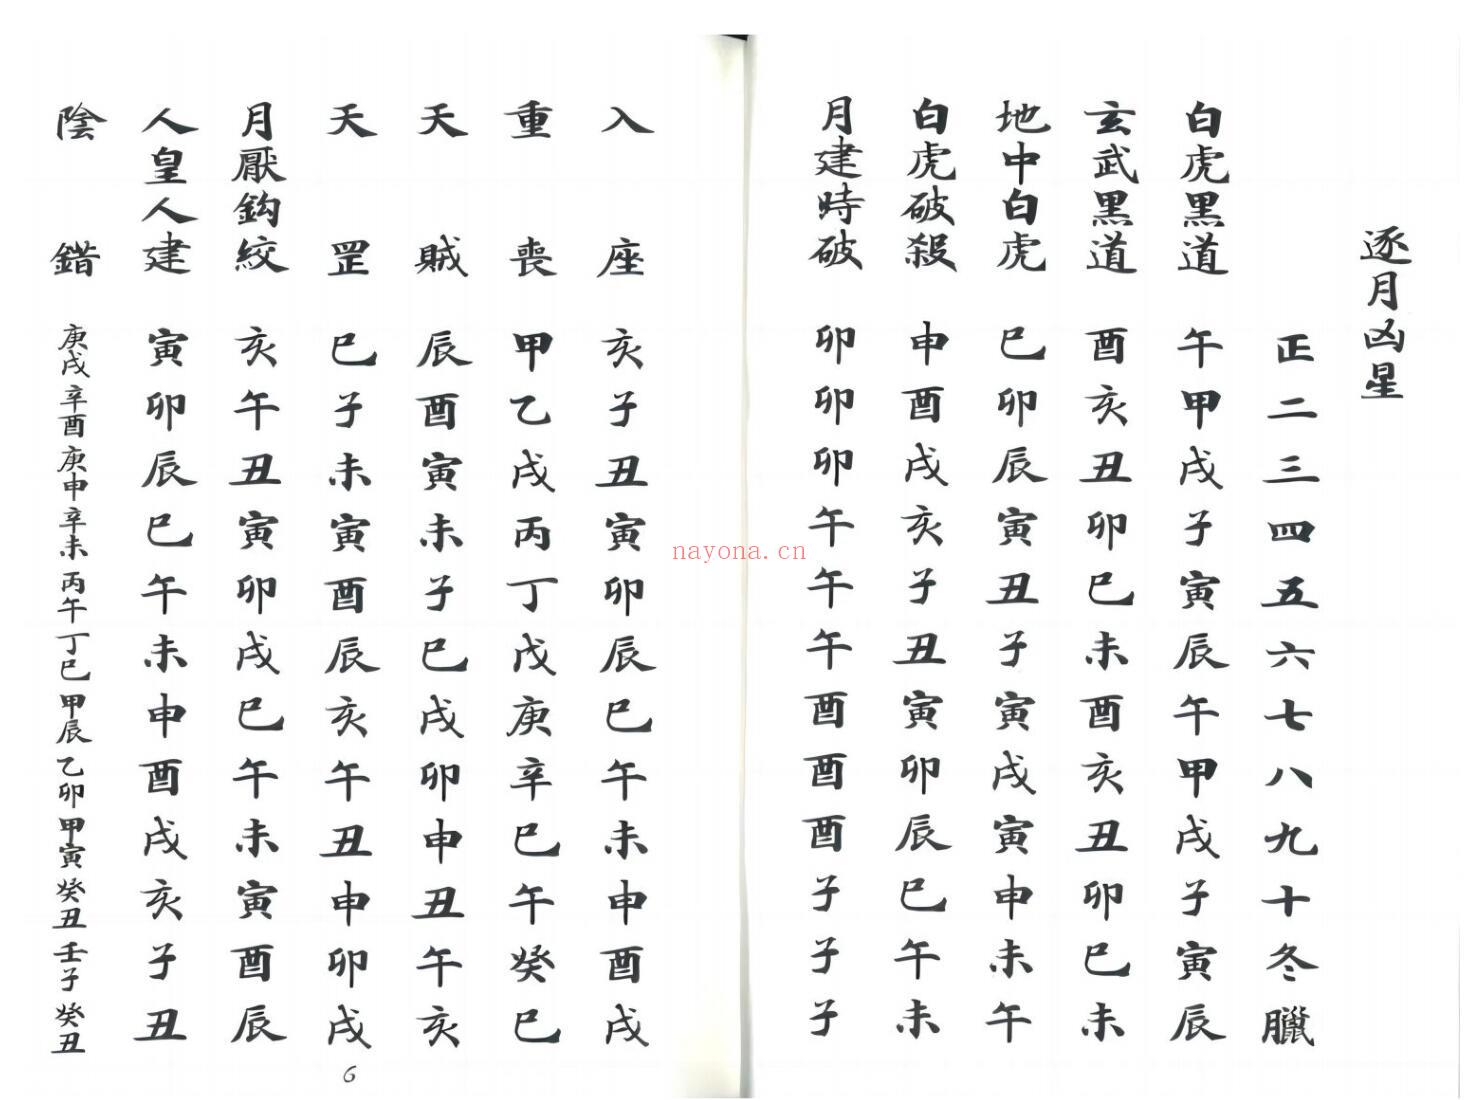 逐月凶星
正二三四五六七八九十冬臘
白虎黑道 午甲戌子寅辰午甲戌子寅辰
玄武黑道 酉亥丑卯巳未酉亥丑卯巳未
地中白虎 巳卯辰寅丑子寅戌寅申未午
白虎破殺 申酉戌亥子丑寅卯辰巳午未
月建時破 卯卯卯午午午酉酉酉子子子
入座 亥子丑寅卯辰巳午未申酉戌
重喪 甲乙戌丙丁戊庚辛巳午癸巳
天賊 辰酉寅未子巳戌卯申丑午亥
天罡 巳子未寅酉辰亥午丑申卯戌
月厭鈎絞 亥午丑寅卯戌巳午未寅酉辰
人皇人建 寅卯辰巳午未申酉戌亥子丑
陰錯 庚戌辛酉庚申辛未丙午丁巳甲辰乙卯甲寅癸丑壬子癸丑
6
nayona.cn